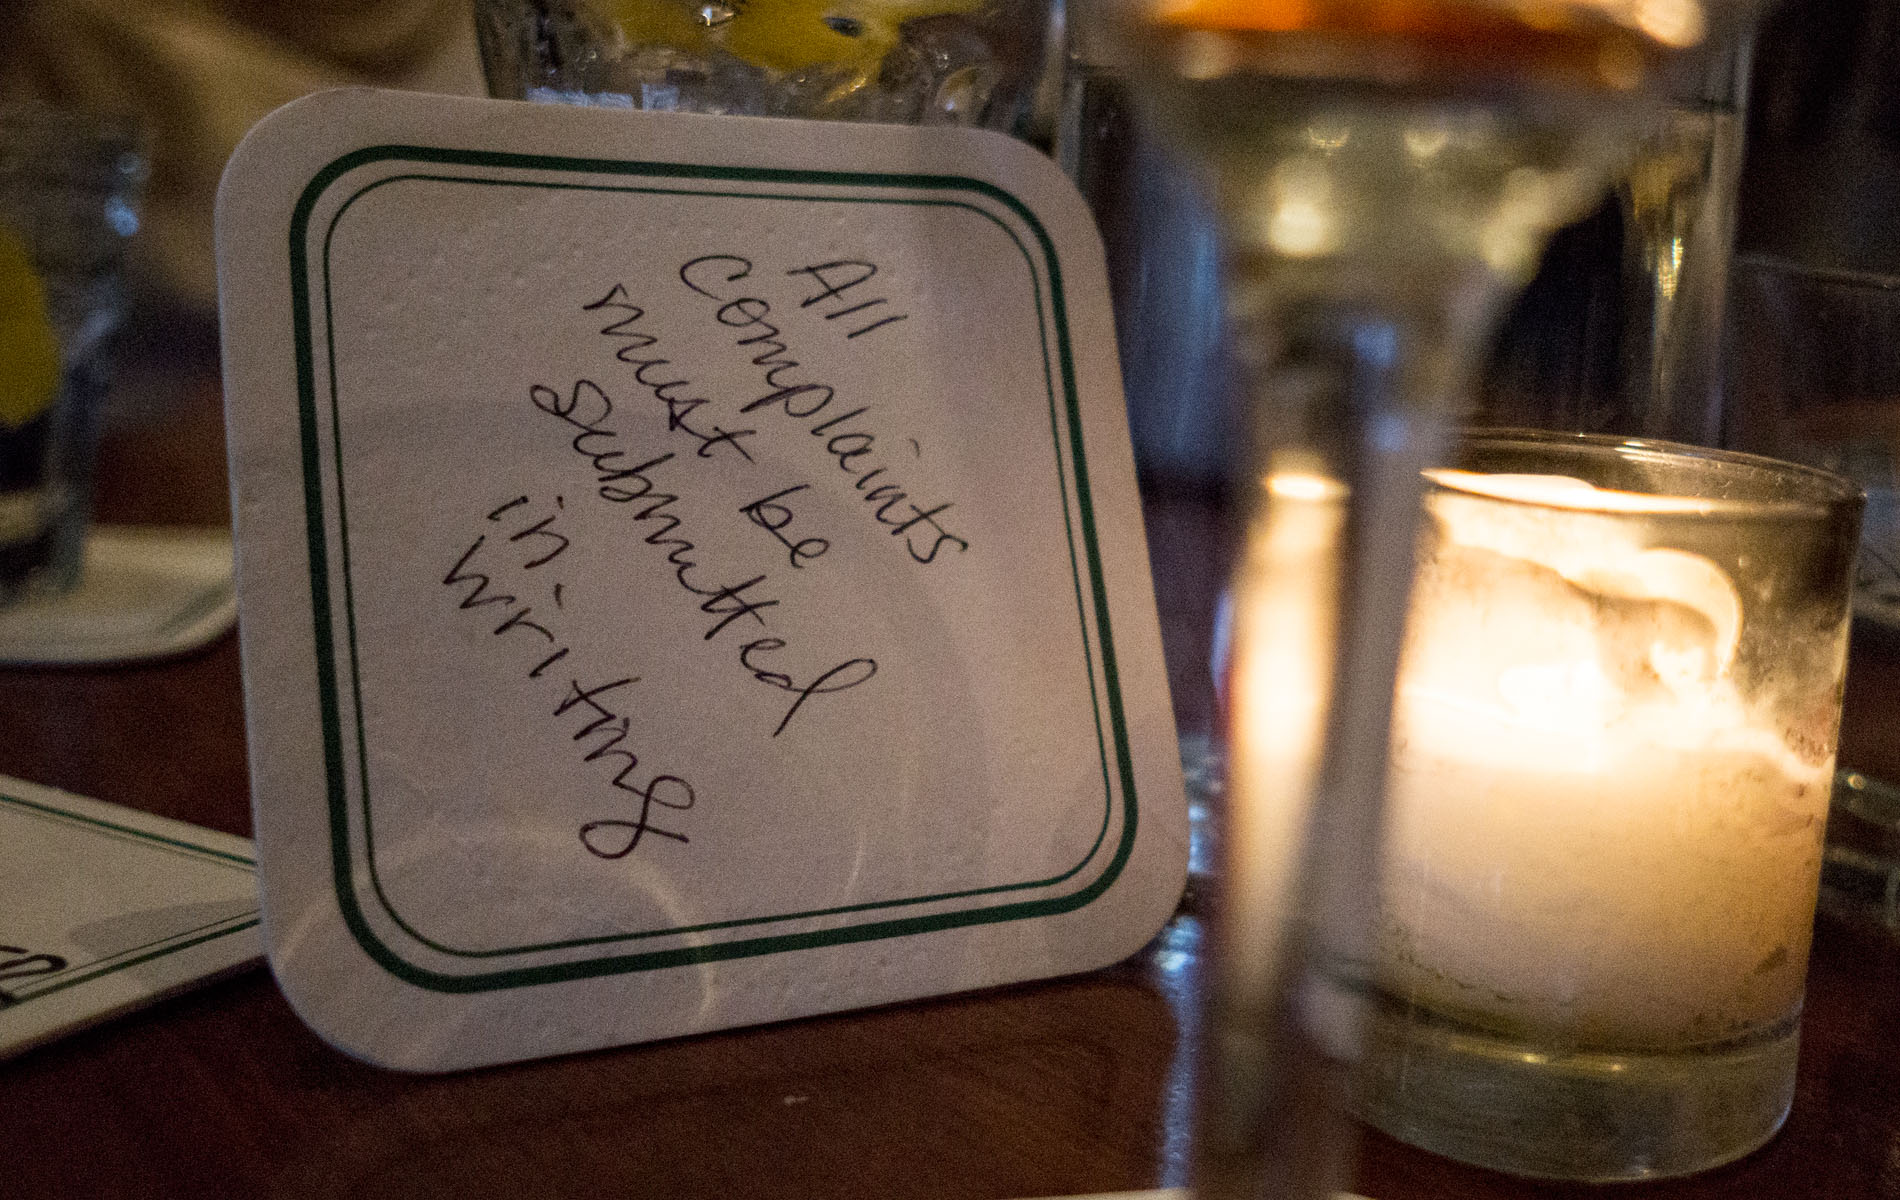 All
Complaints
must be
Submitted
in
writing